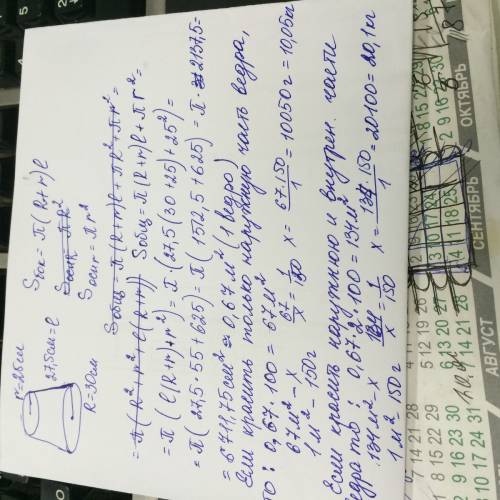 r=25см
27,5см=l
R=30см
Sбок= π(R+r)l
Sосн= πR²
Sосн= πr²
Sобщ= π(R+r)l+πR²+πr²=
=π(R²+r²+l(R+r)) Sобщ=π(R+r)l+πr²=
=π(l(R+r)+r²)=π·(27,5(30+25)+25²)=
=π(27,5·55+625)=π(1512,5+625)=π 2137,5=
=6711,75см²≈0,67м² (1 ведро)
Если красить только наружную часть ведра,
то: 0,67·100=67м²
67м²-x
1м²-150г
67/x=1/150
x=67·150/1=10050г=10,05кг
Если красить наружную и внутрен. части
ведра то: 0,67·2·100=134м²
134м²-x
1м²-150г
134/x=1/150
x=134·150/1=20100=20,1кг
АВГУСТ
СЕНТЯБРЬ
ОКТЯБРЬ